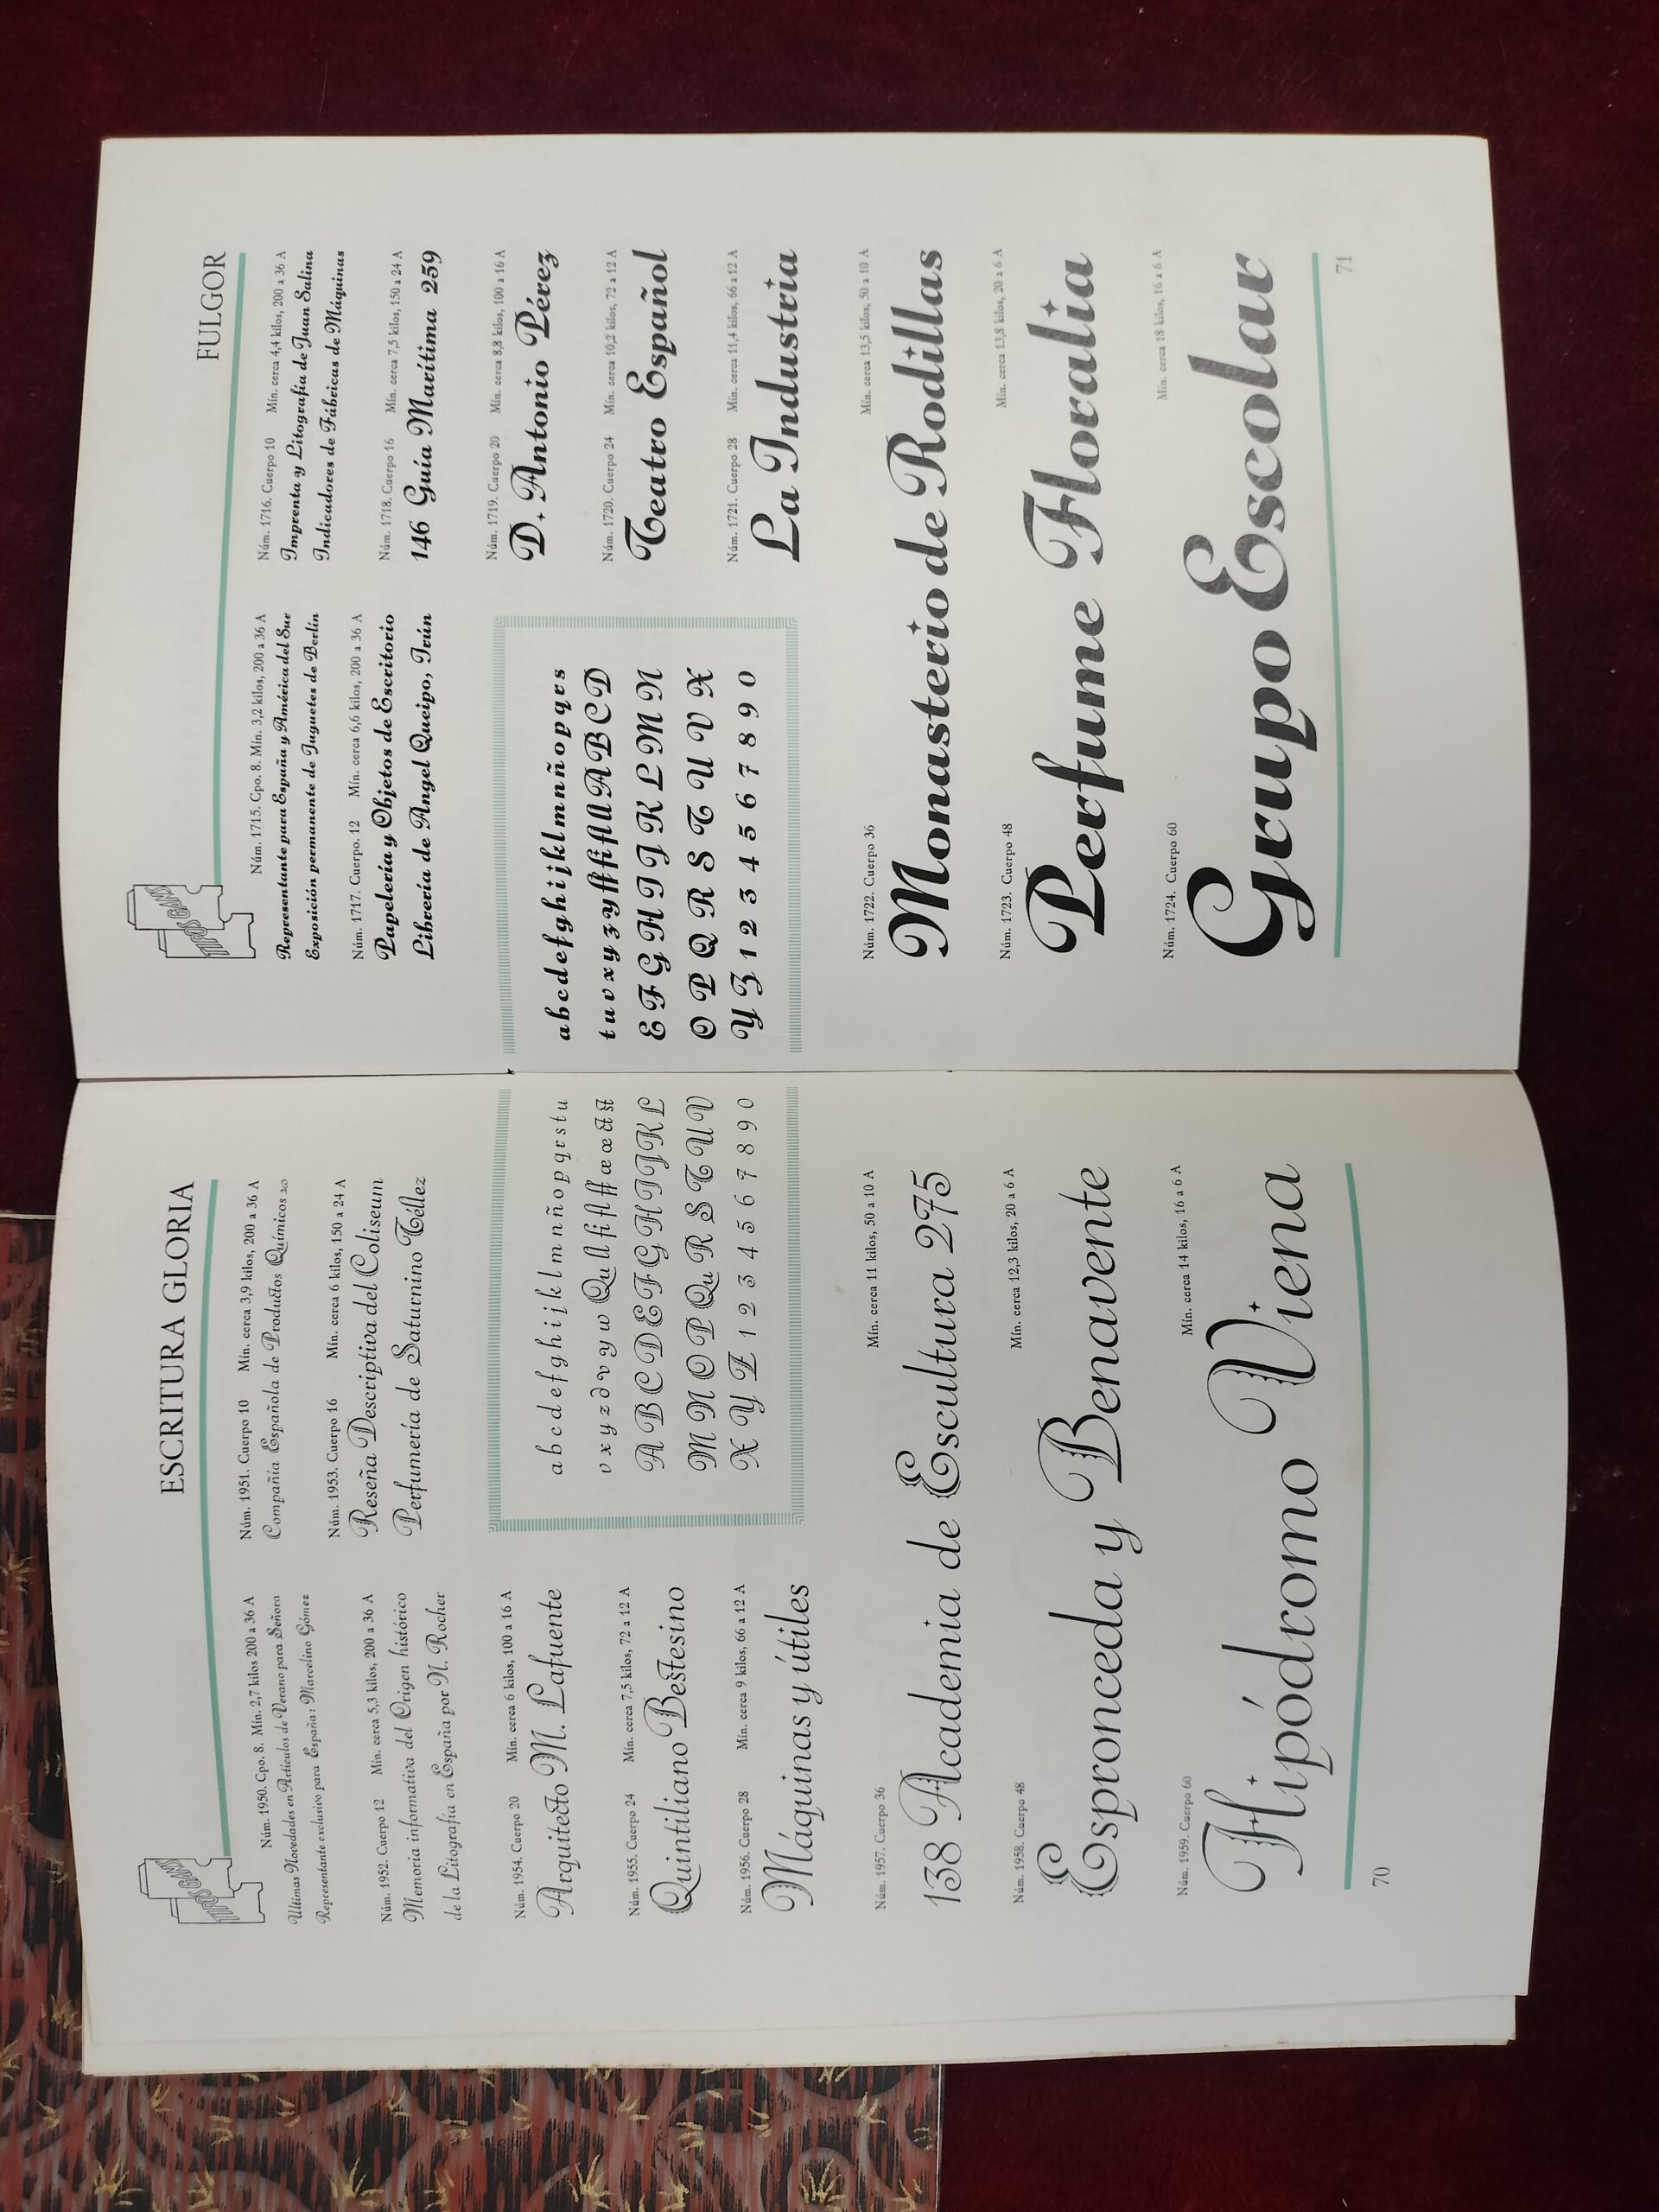 ESCRITURA GLORIA
TIPOS GANS
Núm. 1950. Cpo. 8. Mín. 2,7 kilos 200 a 36 A
Ultimas Novedades en Artículos de Verano para Señora
Representante exclusivo para España: Marcelino Gómez
Núm. 1951. Cuerpo 10 Mín. cerca 3,9 kilos, 200 a 36 A
Compañía Española de Productos Químicos 20
Núm. 1952. Cuerpo 12 Mín. cerca 5,3 kilos, 200 a 36 A
Memoria informativa del Origen histórico
de la Litografía en España por N. Rocher
Núm. 1953. Cuerpo 16 Mín. cerca 6 kilos, 150 a 24 A
Reseña Descriptiva del Coliseum
Perfumería de Saturnino Téllez
Núm. 1954. Cuerpo 20 Mín. cerca 6 kilos, 100 a 16 A
Arquitecto M. Lafuente
Núm. 1955. Cuerpo 24 Mín. cerca 7,5 kilos, 72 a 12 A
Quintiliano Bestesino
Núm. 1956. Cuerpo 28 Mín. cerca 9 kilos, 66 a 12 A
Máquinas y útiles
a b c d e f g h i j k l m n ñ o p q r s t u
v x y z d v y w Qu ll fi fl ff æ œ ct st
A B C D E F G H I J K L
M N O P Qu R S T U V
X Y Z 1 2 3 4 5 6 7 8 9 0
Núm. 1957. Cuerpo 36 Mín. cerca 11 kilos, 50 a 10 A
138 Academia de Escultura 275
Núm. 1958. Cuerpo 48 Mín. cerca 12,3 kilos, 20 a 6 A
Espronceda y Benavente
Núm. 1959. Cuerpo 60 Mín. cerca 14 kilos, 16 a 6 A
Hipódromo Viena
70
FULGOR
TIPOS GANS
Núm. 1715. Cpo. 8. Mín. 3,2 kilos, 200 a 36 A
Representante para España y América del Sur
Exposición permanente de Juguetes de Berlín
Núm. 1716. Cuerpo 10 Mín. cerca 4,4 kilos, 200 a 36 A
Imprenta y Litografía de Juan Salina
Indicadores de Fábricas de Máquinas
Núm. 1717. Cuerpo. 12 Mín. cerca 6,6 kilos, 200 a 36 A
Papelería y Objetos de Escritorio
Librería de Angel Queipo, Irún
Núm. 1718. Cuerpo 16 Mín. cerca 7,5 kilos, 150 a 24 A
146 Guía Marítima 259
a b c d e f g h i j k l m n ñ o p q r s
t u v x y z y ff fi fl ll A B C D
E F G H I J K L M N
O P Q R S T U V X
Y Z 1 2 3 4 5 6 7 8 9 0
Núm. 1719. Cuerpo 20 Mín. cerca 8,8 kilos, 100 a 16 A
D. Antonio Pérez
Núm. 1720. Cuerpo 24 Mín. cerca 10,2 kilos, 72 a 12 A
Teatro Español
Núm. 1721. Cuerpo 28 Mín. cerca 11,4 kilos, 66 a 12 A
La Industria
Núm. 1722. Cuerpo 36 Mín. cerca 13,5 kilos, 50 a 10 A
Monasterio de Rodillas
Núm. 1723. Cuerpo 48 Mín. cerca 13,8 kilos, 20 a 6 A
Perfume Floralia
Núm. 1724. Cuerpo 60 Mín. cerca 18 kilos, 16 a 6 A
Grupo Escolar
71